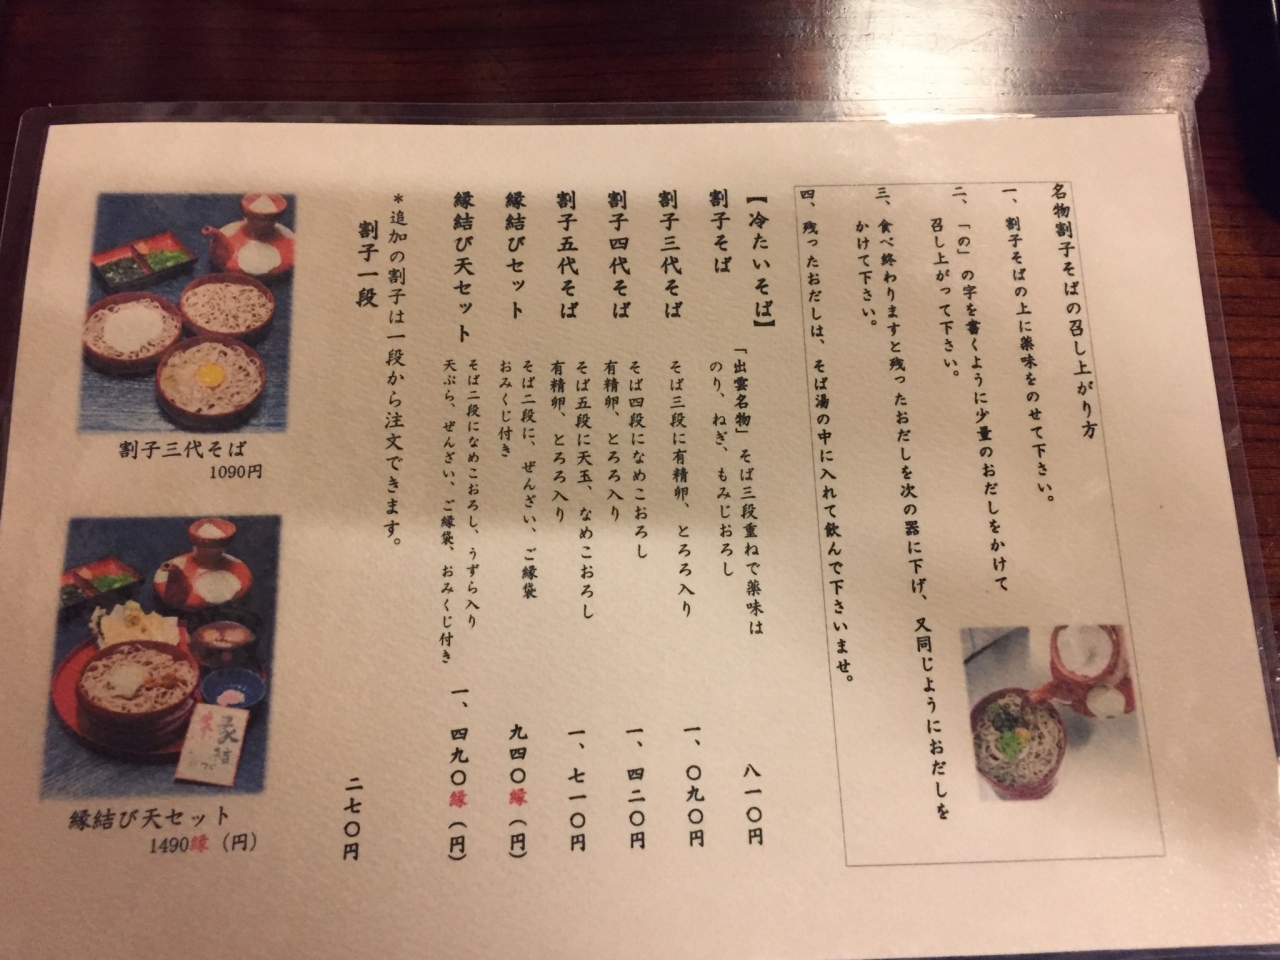 名物割子そばの召し上がり方
一、割子そばの上に薬味をのせて下さい。
二、「の」の字を書くように少量のおだしをかけて
召し上がって下さい。
三、食べ終わりますと残ったおだしを次の器に下げ、又同じようにおだしを
かけて下さい。
四、残ったおだしは、そば湯の中に入れて飲んで下さいませ。
【冷たいそば】
割子そば
「出雲名物」そば三段重ねで薬味は
のり、ねぎ、もみじおろし
八一〇円
割子三代そば
そば三段に有精卵、とろろ入り
一、〇九〇円
割子四代そば
そば四段になめこおろし
有精卵、とろろ入り
一、四二〇円
割子五代そば
そば五段に天玉、なめこおろし
有精卵、とろろ入り
一、七一〇円
縁結びセット
そば二段に、ぜんざい、ご縁袋
おみくじ付き
九四〇縁（円）
縁結び天セット
そば二段になめこおろし、うずら入り
天ぷら、ぜんざい、ご縁袋、おみくじ付き
一、四九〇縁（円）
＊追加の割子は一段から注文できます。
割子一段
二七〇円
割子三代そば
1090円
縁結
縁結び天セット
1490縁（円）